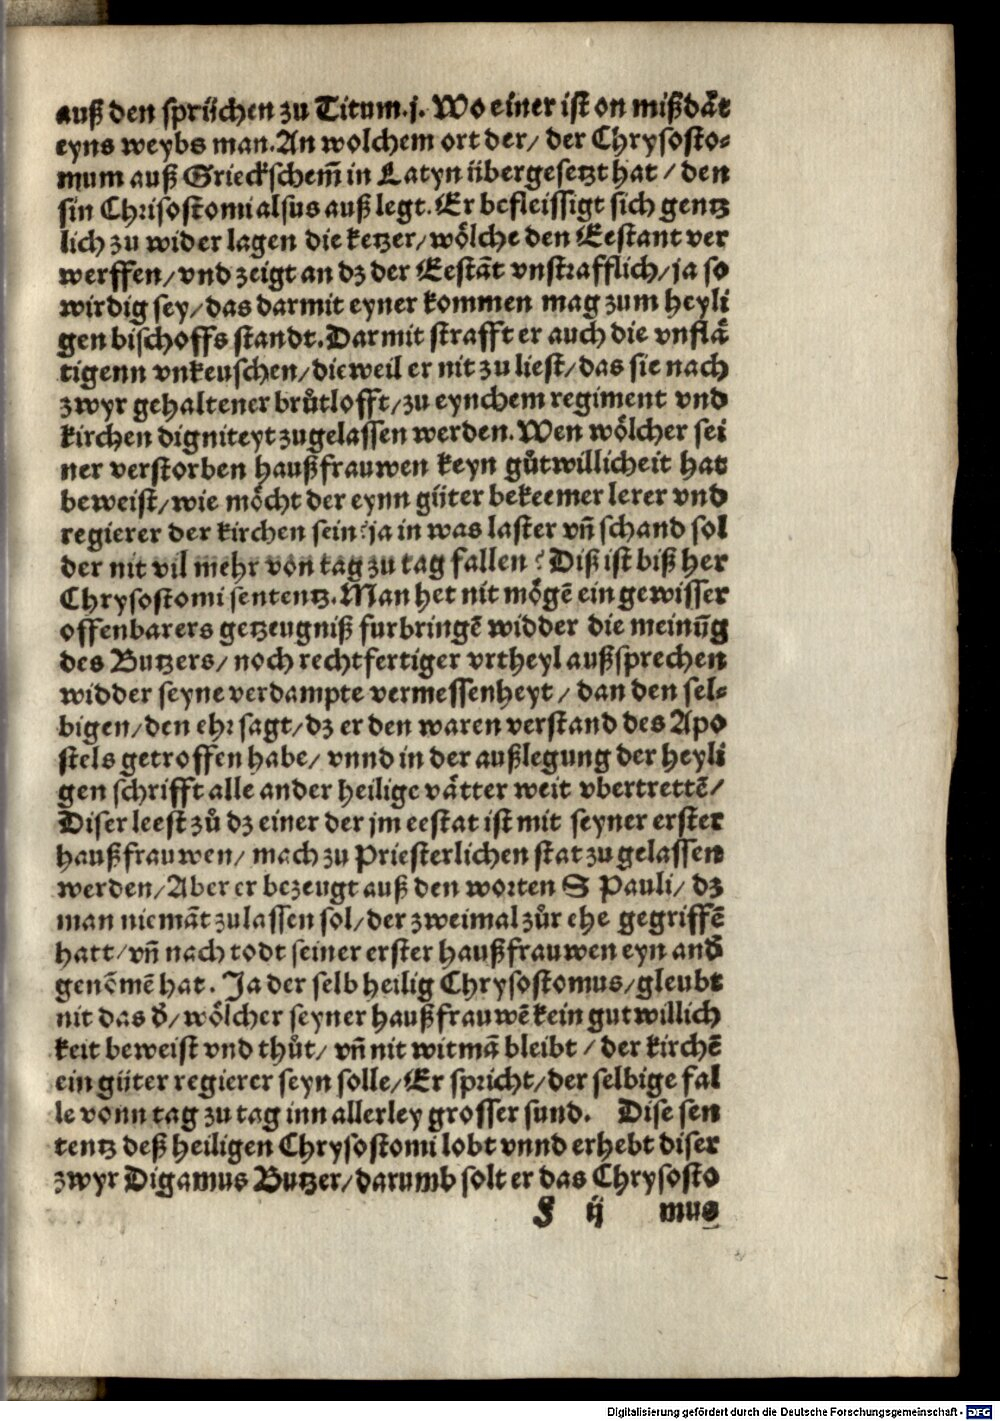 auß den sprüchen zu Titum.j. Wo einer ist on mißdāt
eyns weybs man. An wolchem ort der/ der Chrysosto⸗
mum auß Grieckschem̃ in Latyn übergesetzt hat / den
sin Chrisostomi alsus auß legt. Er befleissigt sich gentz
lich zu wider lagen die ketzer/ woͤlche den Eestant ver
werffen/ vnd zeigt an dz der Eestāt vnstrafflich/ ja so
wirdig sey/ das darmit eyner kommen mag zum heyli
gen bischoffs standt. Darmit strafft er auch die vnflaͤ
tigenn vnkeuschen/ dieweil er nit zu liest/ das sie nach
zwyr gehaltener bruͤtlofft/ zu eynchem regiment vnd
kirchen digniteyt zugelassen werden. Wen woͤlcher sei
ner verstorben haußfrauwen keyn guͤtwillicheit hat
beweist/ wie moͤcht der eynn güter bekeemer lerer vnd
regierer der kirchen sein? ja in was laster vñ schand sol
der nit vil mehr von tag zu tag fallen? Diß ist biß her
Chrysostomi sententz. Man het nit moͤgē ein gewisser
offenbarers getzeugniß furbringē widder die meinūg
des Butzers/ noch rechtfertiger vrtheyl außsprechen
widder seyne verdampte vermessenheyt / dan den sel⸗
bigen/ den ehr sagt/ dz er den waren verstand des Apo
stels getroffen habe/ vnnd in der außlegung der heyli
gen schrifft alle ander heilige vaͤtter weit vbertrettē/
Diser leest zuͦ dz einer der jm eestat ist mit seyner erster
haußfrauwen/ mach zu Priesterlichen stat zu gelassen
werden/ Aber er bezeugt auß den worten S Pauli/ dz
man niemāt zulassen sol/ der zweimal zuͦr ehe gegriffē
hatt/ vñ nach todt seiner erster haußfrauwen eyn and̄
genōmē hat. Ja der selb heilig Chrysostomus/ gleubt
nit das d̄/ woͤlcher seyner haußfrauwē kein gutwillich
keit beweist vnd thuͦt/ vñ nit witmā bleibt / der kirchē
ein güter regierer seyn solle/ Er spricht/ der selbige fal
le vonn tag zu tag inn allerley grosser sund. Dise sen
tentz deß heiligen Chrysostomi lobt vnnd erhebt diser
zwyr Digamus Butzer/ darumb solt er das Chrysosto
S ij mus
Digitalisierung gefördert durch die Deutsche Forschungsgemeinschaft - DFG